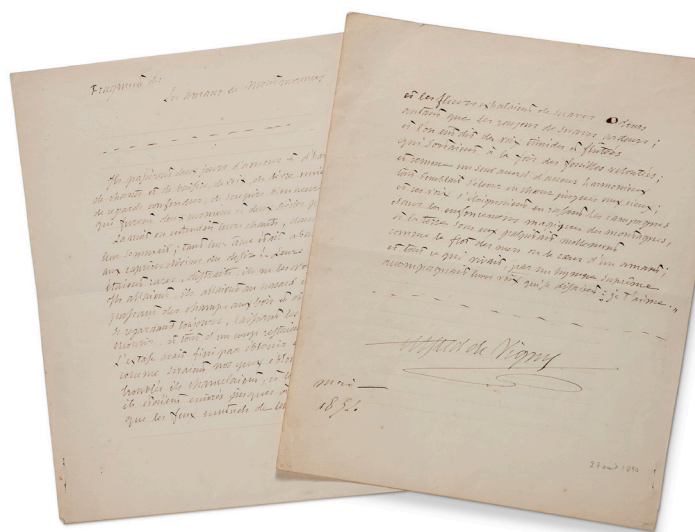 Fragment de:
Les amans de Montmorency
Ils passèrent deux jours d'amour et d'har
de chants et de baisers, de voix, de lèvres unies
de regards confondus, de soupirs bienheureux
qui furent deux momens et deux siècles pour
La nuit on entendait leurs chants; dans
leur sommeil; tant leur âme était aba
aux caprices divins du désir! Leurs
étaient rares, distraits; ils ne les
Ils allaient, ils allaient au hasard et
passant des champs aux bois et
se regardant toujours, laissant les
mourir, et tout d'un coup
L'extase avait fini par éblouir
comme seraient nos yeux
troublés ils chancelaient, et le
ils étaient enivrés jusques
que les feux mutuels de leur
et les fleurs exhalaient de suaves Odeurs
autant que les rayons de suaves ardeurs;
et l'on entendit des voix timides et flûtées
qui sortaient à la fois des feuilles veloutées;
et comme un seul accord d'accens harmonieux
tout semblait s'élever en chœur jusques aux cieux;
et ces voix s'éloignaient en rasant les campagnes
dans les enfoncemens magiques des montagnes,
et la terre sous eux palpitait mollement
comme le flot des mers ou le cœur d'un amant;
et tout ce qui vivait, par un hymne suprême
accompagnait leurs voix qui se disaient; je t'aime."
Alfred de Vigny
1851.